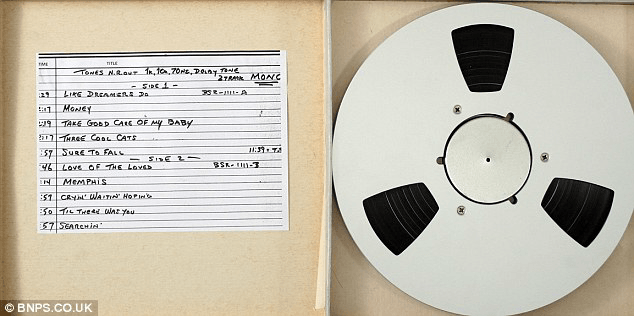 TIME TITLE
TONES N.R. OUT 1K, 10K, 70HZ, DOLBY TONE
2 TRACK MONO
- SIDE 1 -
:29 LIKE DREAMERS DO BSR-1111-A
:17 MONEY
:19 TAKE GOOD CARE OF MY BABY
:17 THREE COOL CATS
:57 SURE TO FALL 11:59
- SIDE 2 -
:46 LOVE OF THE LOVED BSR-1111-B
:14 MEMPHIS
:57 CRYIN' WAITIN' HOPING
:50 TIL THERE WAS YOU
:57 SEARCHIN'
© BNPS.CO.UK